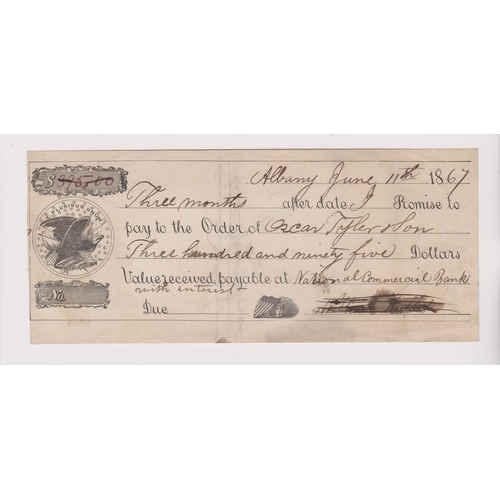 $ 395.00
Albany June 11th 1867
E PLURIBUS UNUM
Three months after date I Promise to
pay to the Order of Oscar Tyler & Son
Three hundred and ninety five Dollars
Value received, payable at National Commercial Bank
with interest
No.
Due